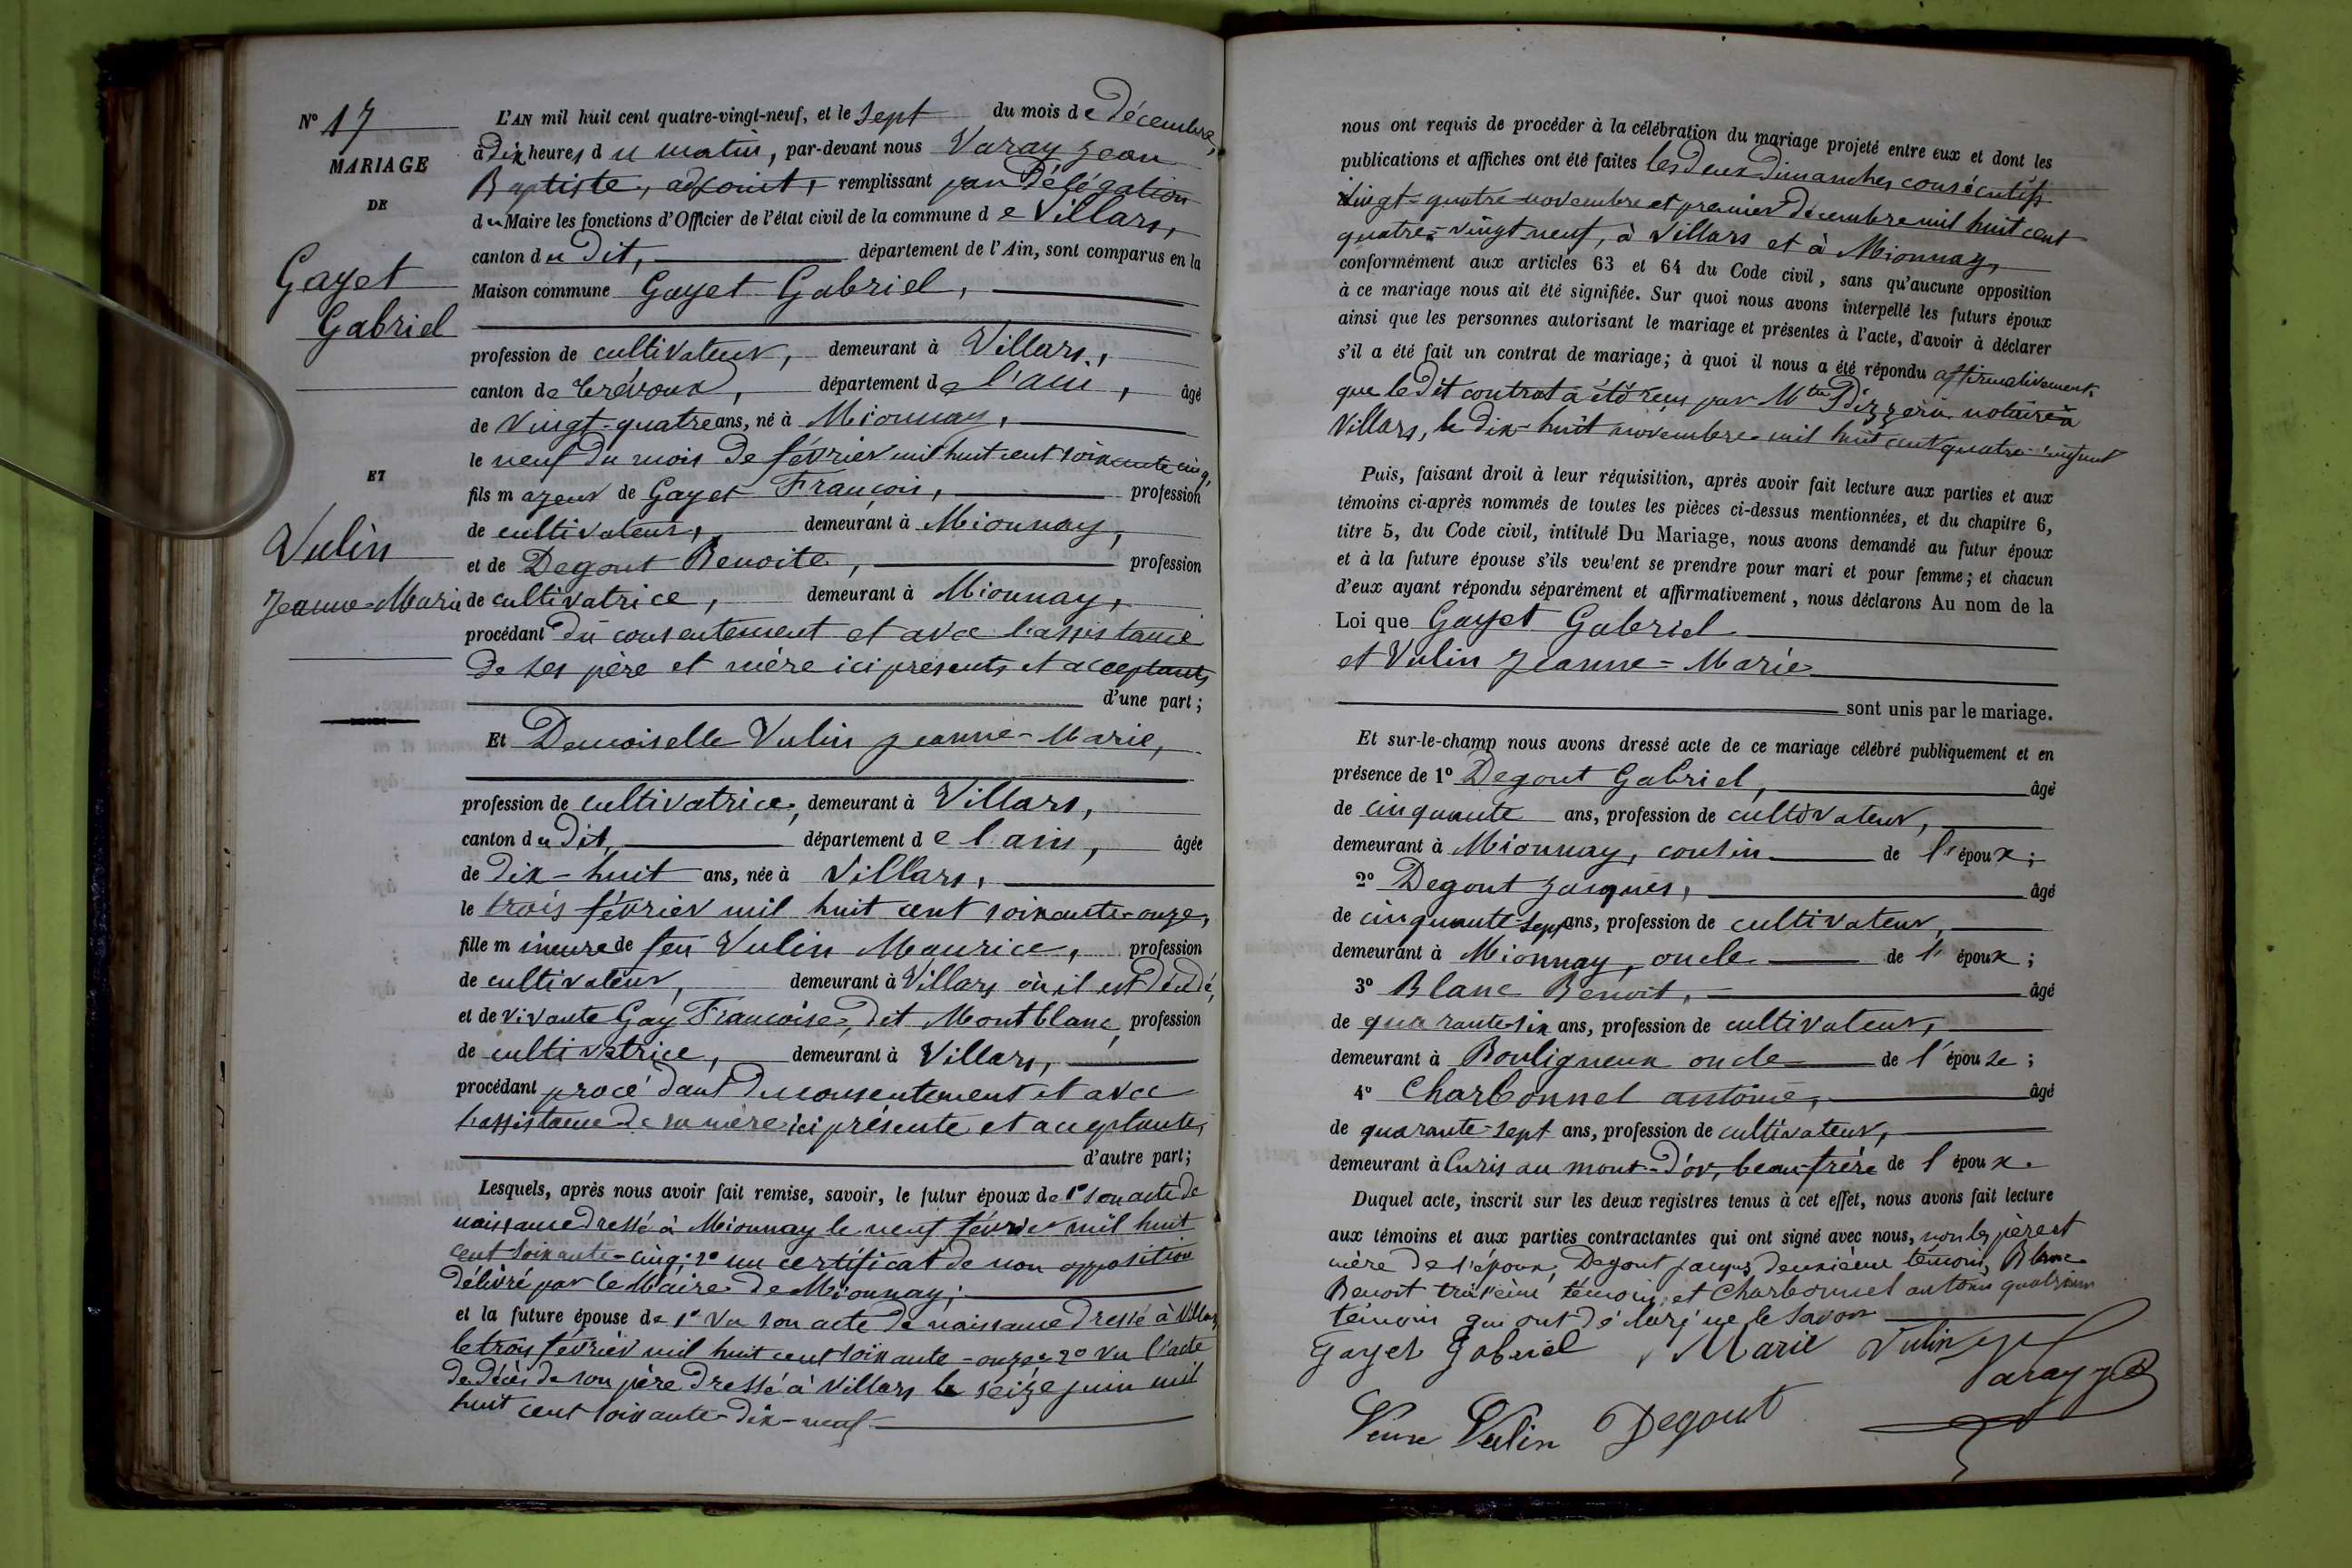 N° 17
MARIAGE
DE
Gayet
Gabriel
ET
Vulin
Jeanne-Marie
L'AN mil huit cent quatre-vingt-neuf, et le sept du mois de décembre,
à dix heures du matin, par-devant nous Varay Jean
Baptiste, adjoint, remplissant par Délégation
du Maire les fonctions d'Officier de l'état civil de la commune de Villars,
canton du dit, département de l'Ain, sont comparus en la
Maison commune Gayet Gabriel,
profession de cultivateur, demeurant à Villars,
canton de Trévoux, département de l'ain, âgé
de vingt-quatre ans, né à Mionnay,
le neuf du mois de février mil huit cent soixante cinq,
fils majeur de Gayet François, profession
de cultivateur, demeurant à Mionnay,
et de Degout Benoite, profession
de cultivatrice, demeurant à Mionnay,
procédant du consentement et avec l'assistance
de ses père et mère ici présents et acceptants
d'une part;
Et Demoiselle Vulin Jeanne-Marie,
profession de cultivatrice, demeurant à Villars,
canton du dit, département de l'ain, âgée
de dix-huit ans, née à Villars,
le trois février mil huit cent soixante-onze,
fille mineure de feu Vulin Maurice, profession
de cultivateur, demeurant à Villars où il est décédé,
et de vivante Gay Françoise, dit Montblanc, profession
de cultivatrice, demeurant à Villars,
procédant procédant du consentement et avec
l'assistance de sa mère ici présente et acceptante,
d'autre part;
Lesquels, après nous avoir fait remise, savoir, le futur époux de 1° son acte de
naissance dressé à Mionnay le neuf février mil huit
cent soixante-cinq; 2° un certificat de non opposition
délivré par le Maire de Mionnay;
et la future épouse de 1° Vu son acte de naissance dressé à Villars
le trois février mil huit cent soixante-onze 2° vu l'acte
de décès de son père dressé à Villars le seize juin mil
huit cent soixante-dix-neuf
nous ont requis de procéder à la célébration du mariage projeté entre eux et dont les
publications et affiches ont été faites les deux Dimanches consécutifs
vingt-quatre novembre et premier décembre mil huit cent
quatre-vingt neuf, à Villars et à Mionnay,
conformément aux articles 63 et 64 du Code civil, sans qu'aucune opposition
à ce mariage nous ait été signifiée. Sur quoi nous avons interpellé les futurs époux
ainsi que les personnes autorisant le mariage et présentes à l'acte, d'avoir à déclarer
s'il a été fait un contrat de mariage; à quoi il nous a été répondu affirmativement.
que le dit contrat a été reçu par Mtre notaire à
Villars, le dix-huit novembre mil huit cent quatre-vingt neuf
Puis, faisant droit à leur réquisition, après avoir fait lecture aux parties et aux
témoins ci-après nommés de toutes les pièces ci-dessus mentionnées, et du chapitre 6,
titre 5, du Code civil, intitulé Du Mariage, nous avons demandé au futur époux
et à la future épouse s'ils veulent se prendre pour mari et pour femme; et chacun
d'eux ayant répondu séparément et affirmativement, nous déclarons Au nom de la
Loi que Gayet Gabriel
et Vulin Jeanne-Marie
sont unis par le mariage.
Et sur-le-champ nous avons dressé acte de ce mariage célébré publiquement et en
présence de 1° Degout Gabriel, âgé
de cinquante ans, profession de cultivateur,
demeurant à Mionnay, cousin de l'époux;
2° Degout Jacques, âgé
de cinquante-sept ans, profession de cultivateur,
demeurant à Mionnay, oncle de l'époux;
3° Blanc Benoit, âgé
de quarante-six ans, profession de cultivateur,
demeurant à Bouligneux oncle de l'épouse;
4° Charbonnel antoine, âgé
de quarante-sept ans, profession de cultivateur,
demeurant à Curis au mont-d'or, beau-frère de l'époux.
Duquel acte, inscrit sur les deux registres tenus à cet effet, nous avons fait lecture
aux témoins et aux parties contractantes qui ont signé avec nous, non les père et
mère de l'époux, Degout Jacques deuxième témoin, Blanc
Benoit troisième témoin, et Charbonnel antoine quatrième
témoin qui ont déclaré ne le savoir
Gayet Gabriel Marie Vulin
Varay JB
Veuve Vulin Degout